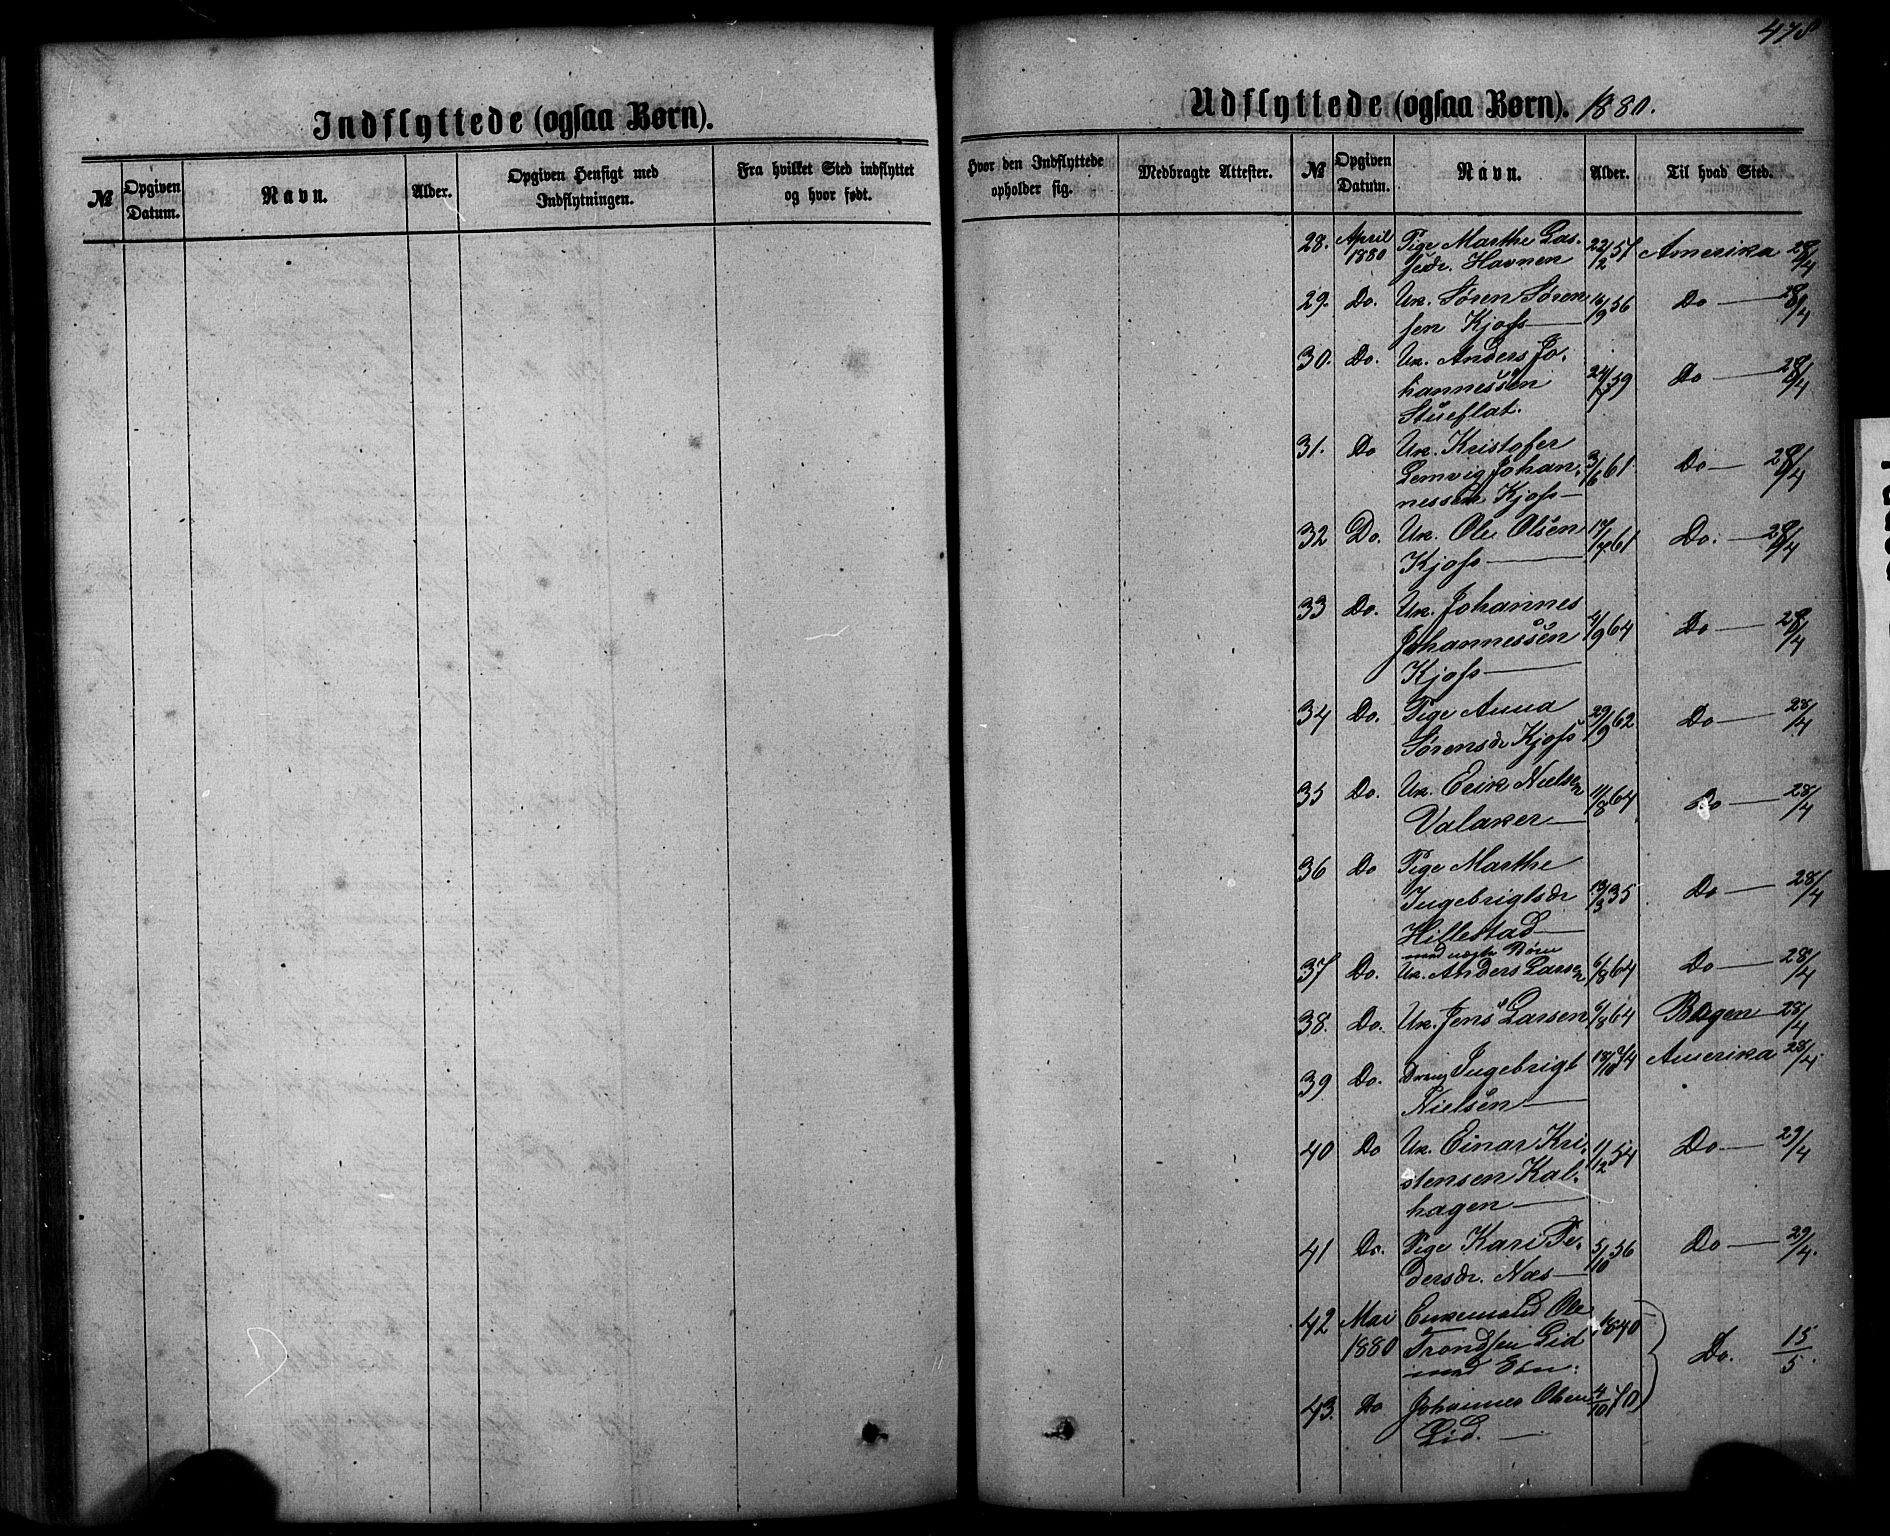 Indflyttede (ogsaa Børn).
№
Opgiven Datum.
Navn.
Alder.
Opgiven Hensigt med Indflytningen.
Fra hvilket Sted indflyttet og hvor født.
478
Udflyttede (ogsaa Børn). 1880.
Hvor den Indflyttede opholder sig.
Medbragte Attester.
№
Opgiven Datum.
Navn.
Alder.
Til hvad Sted.
28. April 1880 Pige Marthe Las- 22/12 57 Amerika 28/4
sedr. Havnen
29. Do. Uk. Søren Søren 16/9 56 Do — 28/4
sen Kjofs —
30. Do. Uk. Anders Jo- 24/7 59 Do — 28/4
hannessen
Stueflat.
31. Do Uk. Kristofer 3/6 61 Do — 28/4
Lemvig Johan-
nessen Kjofs —
32 Do. Uk. Ole Olsen 17/7 61 Do. — 28/4
Kjofs —
33 Do. Uk. Johannes 4/9 64 Do — 28/4
Johannessen
Kjofs —
34 Do. Pige Anna 29/9 62 Do — 28/4
Sørensdr Kjofs
35 Do. Uk. Erik Nielsen 11/8 64 Do — 28/4
Valaker —
36 Do Pige Marthe 13/3 35 Do — 28/4
Ingebrigtsdr
Hillestad —
med uægte Børn
37 Do. Uk. Anders Larsen 6/8 64 Do — 28/4
38. Do. Uk. Jens Larsen 6/8 64 28/4
39 Do. Dreng Ingebrigt 18/10 74 Amerika 28/4
Nielsen —
40 Do Uk. Einar Kri- 11/12 54 Do — 29/4
stensen Kal-
hagen —
41 Do. Pige Kari Pe- 5/10 56 Do — 29/4.
dersdr. Næs —
42 Mai 1880 Enkemand Ole 1840 Do. 15/5.
Trondsen Lid
med Søn:
43. Do Johannes Olsen 4/10 70
Lid. —